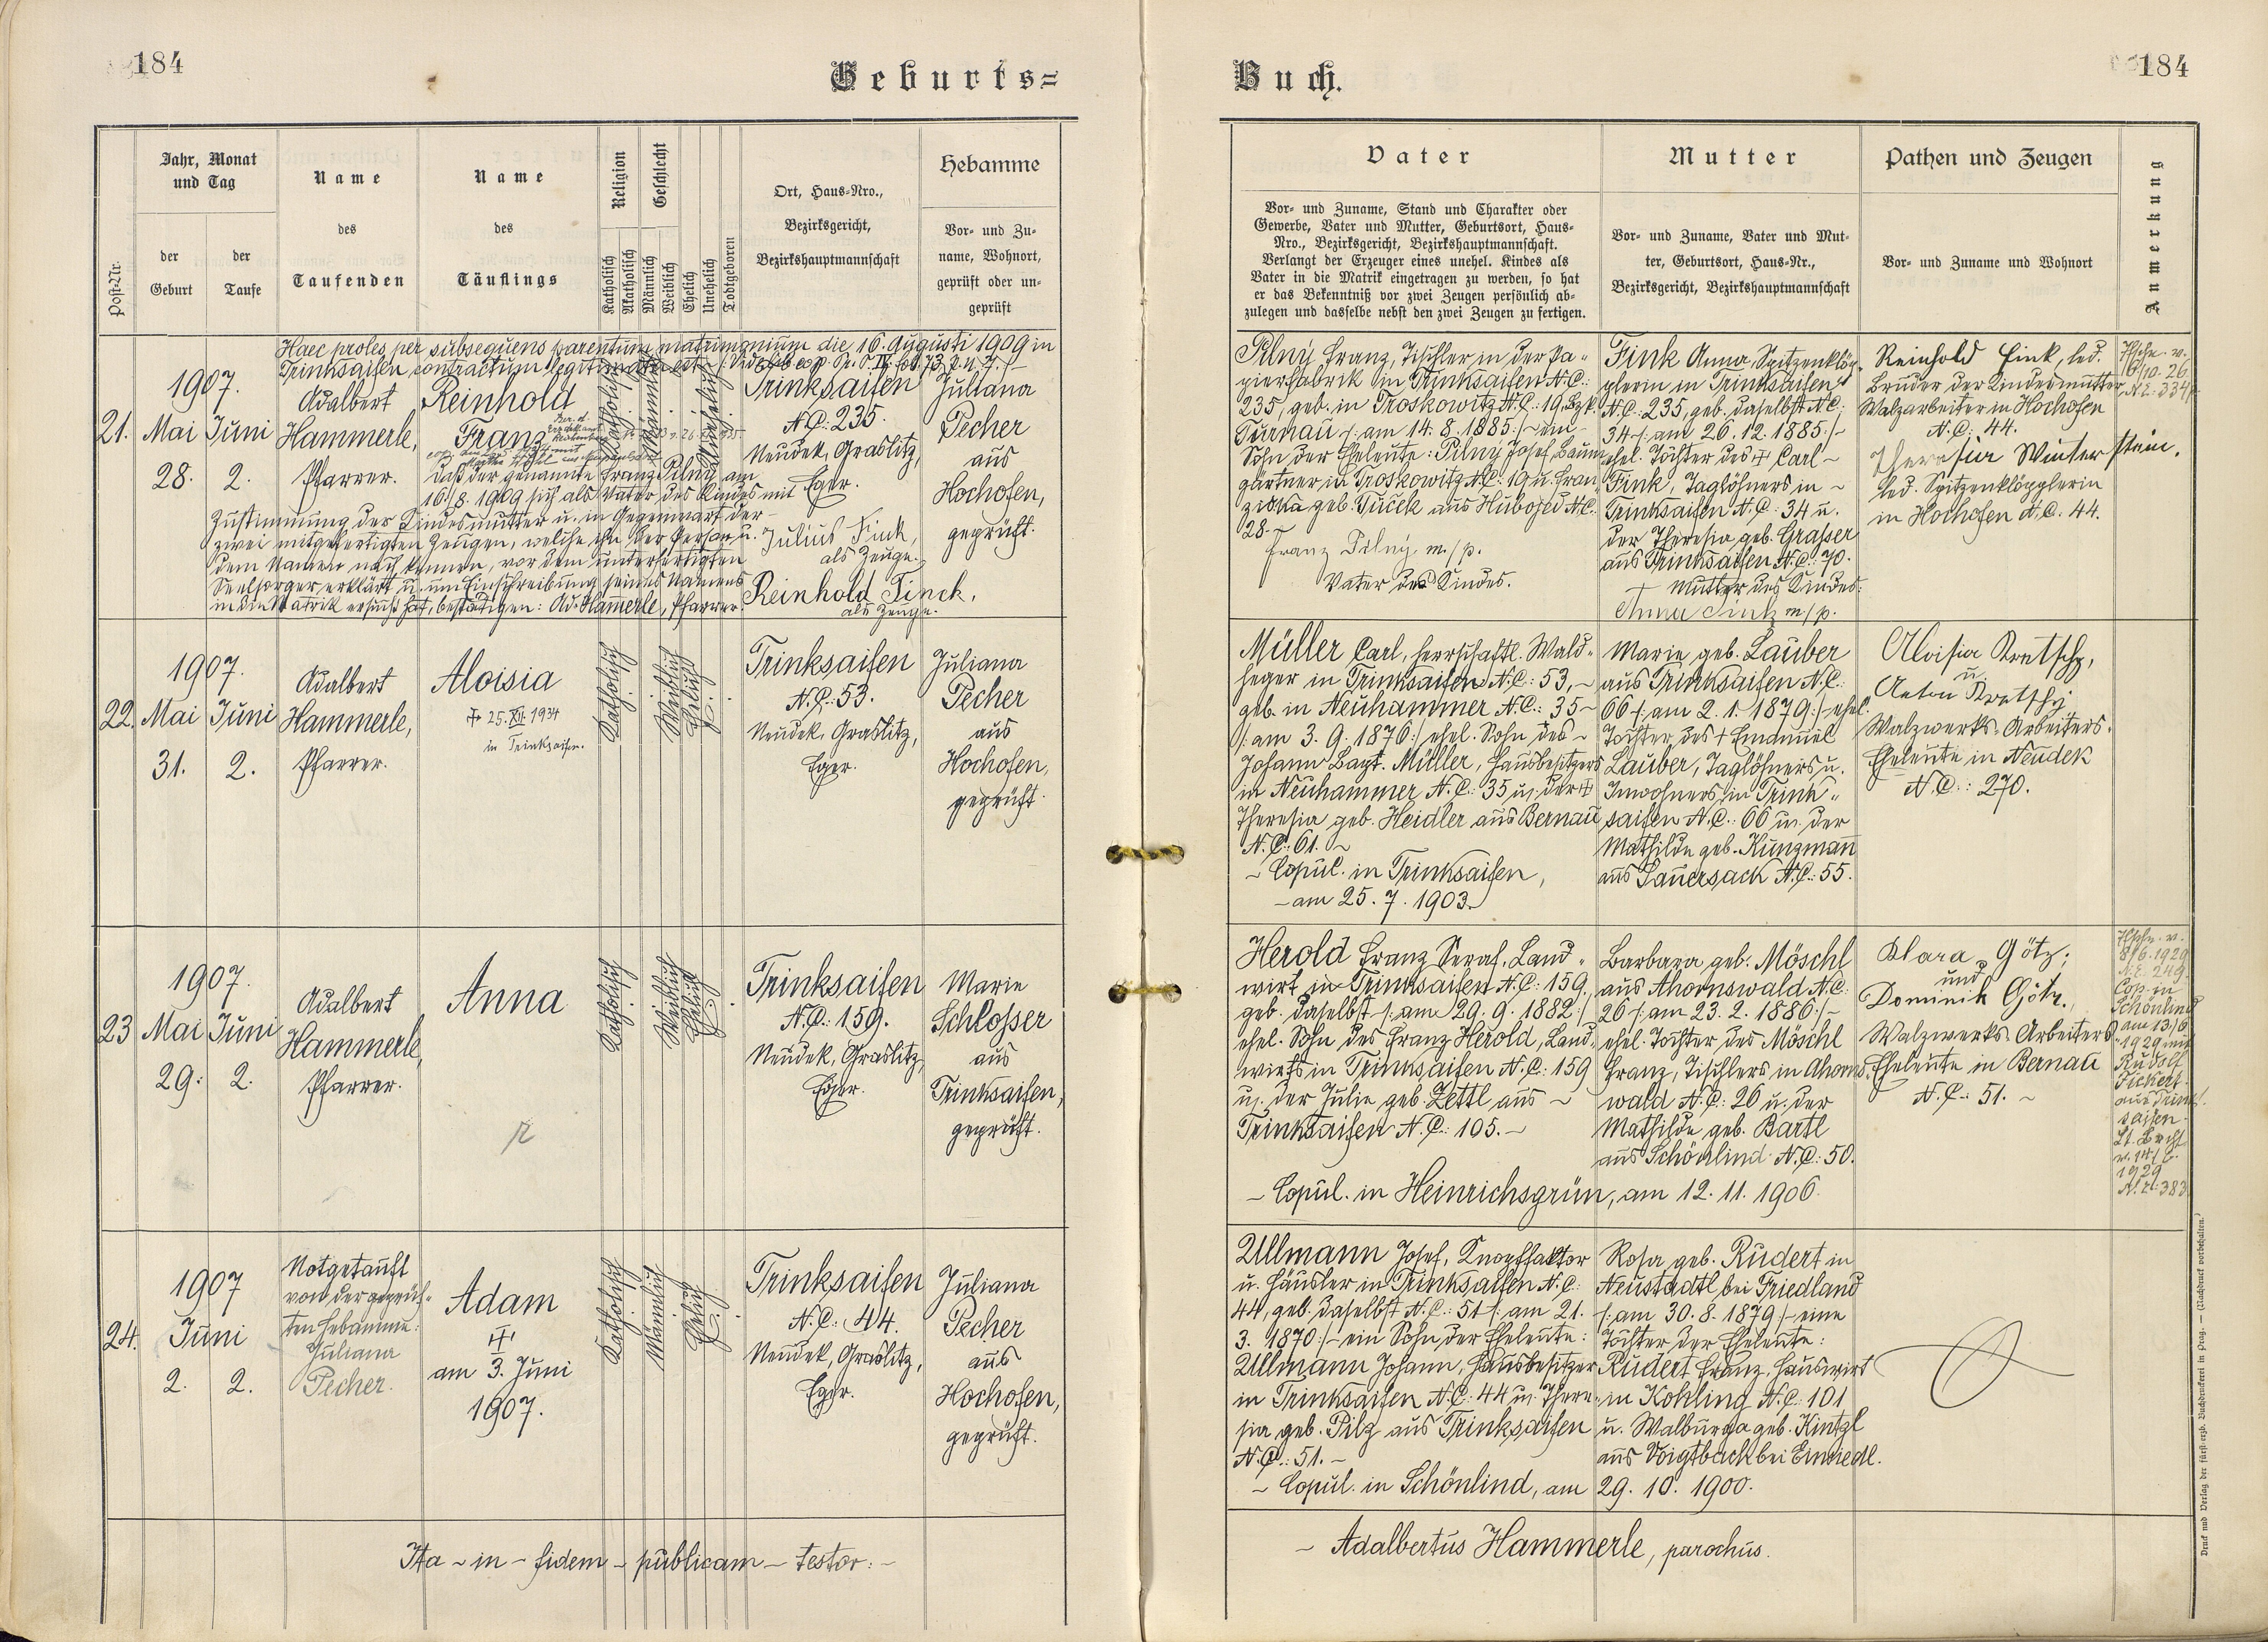 184
Geburts=
Post-Nr.
Jahr, Monat
und Tag
der
Geburt
der
Taufe
Name
des
Taufenden
Name
des
Täuflings
Religion
Katholisch
Akatholisch
Geschlecht
Männlich
Weiblich
Ehelich
Unehelich
Todtgeboren
Ort, Haus-Nro.,
Bezirksgericht,
Bezirkshauptmannschaft
Hebamme
Vor- und Zu-
name, Wohnort,
geprüft oder un-
geprüft
Haec proles per subsequens parentum matrimonium die 16. Augusti 1909 in
Trinksaifen contractum legitimata est
21.
1907.
Mai Juni
28. 2.
Adalbert
Hammerle,
Pfarrer.
Reinhold
Franz
Katholisch
Männlich
Unehelich
Trinksaifen
N.C: 235.
Neudek, Graslitz,
Eger.
Juliana
Pecher
aus
Hochofen,
geprüft.
Daß der genannte Franz Pilný am
16/8. 1909 sich als Vater des Kindes mit
Zustimmung der Kindesmutter u. in Gegenwart der
zwei mitgefertigten Zeugen, welche ihn der Person u.
dem Namen nach kennen, vor dem unterfertigten
Seelsorger erklärt u. um Einschreibung seines Namens
in die Matrik ersucht hat, bestätigen: Ad. Hammerle, Pfarrer.
Julius Fink,
als Zeuge.
Reinhold Finck,
als Zeuge.
22.
1907.
Mai Juni
31. 2.
Adalbert
Hammerle,
Pfarrer.
Aloisia
25. XII. 1934
in Trinksaifen.
Katholisch
Weiblich
Ehelich
Trinksaifen
N.C.: 53.
Neudek, Graslitz,
Eger.
Juliana
Pecher
aus
Hochofen,
geprüft.
23
1907.
Mai Juni
29. 2.
Adalbert
Hammerle,
Pfarrer.
Anna
Katholisch
Weiblich
Ehelich
Trinksaifen
N.C.: 159.
Neudek, Graslitz,
Eger.
Marie
Schlosser
aus
Trinksaifen,
geprüft.
24.
1907
Juni
2. 2.
Notgetauft
von der geprüf-
ten Hebamme:
Juliana
Pecher.
Adam
am 3. Juni
1907.
Katholisch
Männlich
Ehelich
Trinksaifen
N.C: 44.
Neudek, Graslitz,
Eger.
Juliana
Pecher
aus
Hochofen,
geprüft.
Ita - in - fidem - publicam - testor: -
Buch.
184
Vater
Vor- und Zuname, Stand und Charakter oder
Gewerbe, Vater und Mutter, Geburtsort, Haus-
Nro., Bezirksgericht, Bezirkshauptmannschaft.
Verlangt der Erzeuger eines unehel. Kindes als
Vater in die Matrik eingetragen zu werden, so hat
er das Bekenntniß vor zwei Zeugen persönlich ab-
zulegen und dasselbe nebst den zwei Zeugen zu fertigen.
Mutter
Vor- und Zuname, Vater und Mut-
ter, Geburtsort, Haus-Nr.,
Bezirksgericht, Bezirkshauptmannschaft
Pathen und Zeugen
Vor- und Zuname und Wohnort
Anmerkung
Pilný Franz, Tischler in der Pa-
pierfabrik in Trinksaifen N.C.:
235, geb. in Troskowitz N.C.: 19, Bzk.
Turnau /: am 14. 8. 1885:/ ein
Sohn der Eheleute: Pilný Josef, Baum
gärtner in Troskowitz N.C: 19 u. Fran
ziska geb. Tuček aus N.C.
28.
Franz Pilný m/p.
Vater des Kindes.
Fink Anna, Spitzenklöp-
plerin in Trinksaifen
N.C: 235, geb. daselbst N.C.
34 /: am 26. 12. 1885:/
ehel. Tochter des Carl
Fink, Taglöhners in
Trinksaifen N.C: 34 u.
der Theresia geb. Grasser
aus Trinksaifen N.C.: 70.
Mutter des Kindes:
Anna Fink m/p.
Reinhold Fink, led.
Bruder der Kindesmutter
Walzarbeiter in Hochofen
N.C: 44.
Theresia Winterstein,
led. Spitzenklöpplerin
in Hochofen N.C. 44.
Müller Carl, herrschaftl. Wald-
heger in Trinksaifen N.C: 53,
geb. in Neuhammer N.C.: 35
/: am 3. 9. 1876:/ ehel. Sohn des
Johann Bapt. Müller, Hausbesitzers
in Neuhammer N.C.: 35 u. der
Theresia geb. Heidler aus Bernau
N.C: 61.
- Copul. in Trinksaifen,
- am 25. 7. 1903.
Marie geb. Lauber
aus Trinksaifen N.C.
66 /: am 2. 1. 1879:/ ehel.
Tochter des + Emanuel
Lauber, Taglöhners u.
Inwohners in Trink-
saifen N.C.: 66 u. der
Mathilde geb. Kunzmann
aus Sauersack N.C.: 55.
Aloisia Kretschy,
u.
Anton Kretschy
Walzwerks-Arbeiters-
Eheleute in Neudek
N.C.: 270.
Herold Franz Seraf. Land-
wirt in Trinksaifen N.C: 159,
geb. daselbst /: am 29. 9. 1882:/
ehel. Sohn des Franz Herold, Land-
wirts in Trinksaifen N.C: 159
u. der Julie geb. Zettl aus
Trinksaifen N.C.: 105.
- Copul. in Heinrichsgrün, am 12. 11. 1906.
Barbara geb. Möschl
aus Ahornswald N.C.
26 /: am 23. 2. 1886:/
ehel. Tochter des Möschl
Franz, Tischlers in Ahorns-
wald N.C: 26 u. der
Mathilde geb. Bartl
aus Schönlind N.C: 50.
Klara Götz,
und
Dominik Götz,
Walzwerks-Arbeiters
Eheleute in Bernau
N.C.: 51.
Cop. in
Schönlind
am 13/6
1929 mit
Rudolf
Fickert
aus Trink-
saifen.
1929
N.E: 383
Ullmann Josef, Knopffaktor
u. Häusler in Trinksaifen N.C:
44, geb. daselbst N.C.: 51 /: am 21.
3. 1870:/ ein Sohn der Eheleute:
Ullmann Johann, Hausbesitzer
in Trinksaifen N.C: 44 u. There-
sia geb. Pilz aus Trinksaifen
N.C.: 51.
- Copul. in Schönlind, am 29. 10. 1900.
Rosa geb. Rudert in
Neustadtl bei Friedland
/: am 30. 8. 1879:/ eine
Tochter der Eheleute:
Rudert Franz, Hauswirt
in Kohling N.C: 101
u. Walburga geb. Kintzl
aus Voigtbach bei Einsiedl.
- Adalbertus Hammerle, parochus.
Druck und Verlag der fürst-erzb. Buchdruckerei in Prag. — (Nachdruck vorbehalten.)